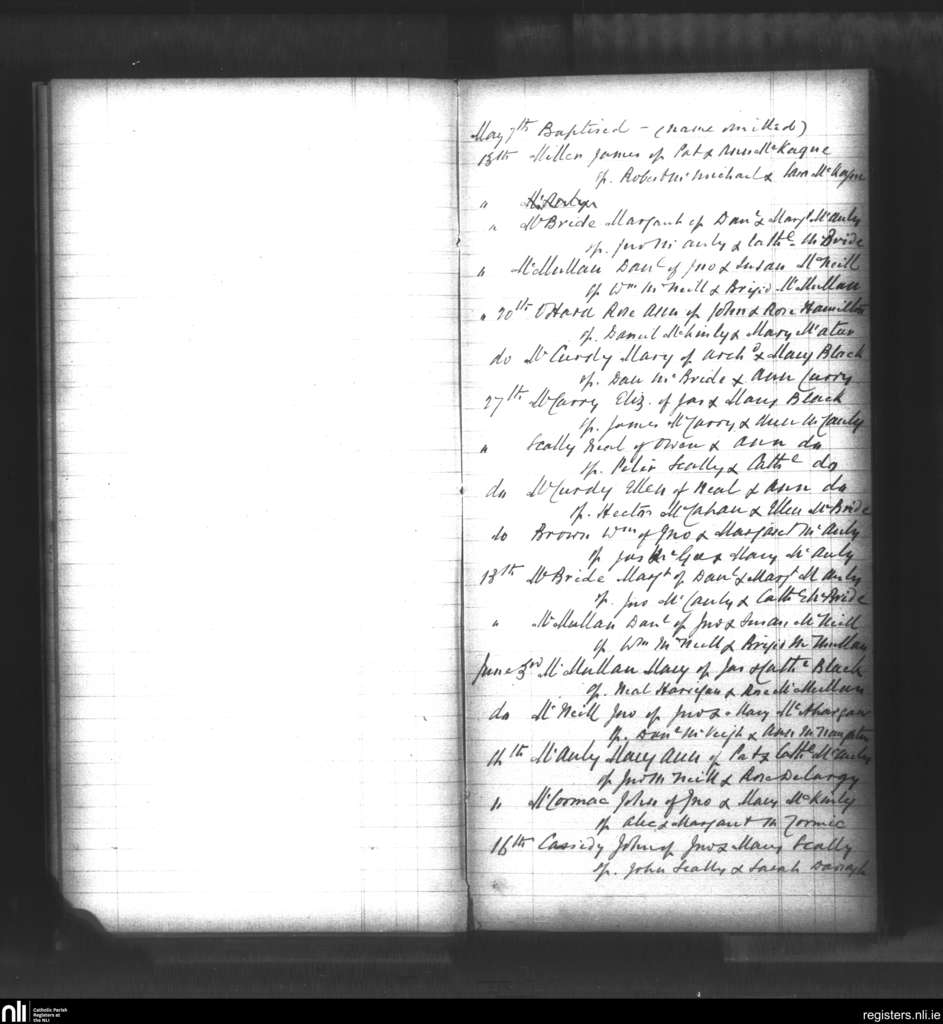 May 7th Baptised - (name omitted)
13th Millen James of Pat & Ann McKague
sp. Robert McMichael & McKague
"
" McBride Margaret of Danl & Margt McAuly
sp. Jno McAuly & Cathe McBride
" McMullan Danl of Jno & Susan McNeill
sp Wm McNeill & Brigid McMullan
" 20th OHara Rose Ann of John & Rose Hamilton
sp. Daniel McKinly & Mary
do McCurdy Mary of Archd & Mary Black
sp. Dan McBride & Ann Curry
27th McCarry Eliz. of Jas & Mary Black
sp. James McCarry & Ann McCauly
" Scally Neal of Owen & Ann do
sp. Peter Scally & Cathe do
do McCurdy Ellen of Neal & Ann do
sp. Hector McCahan & Ellen McBride
do Brown Wm of Jno & Margaret McAuly
sp Jas McGee & Mary McAuly
13th McBride Margt of Danl & Margt McAuly
sp. Jno McCauly & Cathe McBride
" McMullan Danl of Jno & Susan McNeill
sp Wm McNeill & Brigid McMullan
June 3rd McMullan Mary of Jas & Cathe Black
sp. Neal Harrigan & Rose McMullan
do McNeill Jno of Jno & Mary
sp. Danl McVeigh & Ann McNaughten
McAuly Mary Ann of Pat & Cathe McAuly
sp Jno McNeill & Rose Delargy
" McCormac John of Jno & Mary McKinly
sp Alec & Margaret McCormic
16th Cassedy John of Jno & Mary Scally
sp. John Scally & Sarah Darragh
nli
Catholic Parish
Registers at
the NLI
registers.nli.ie